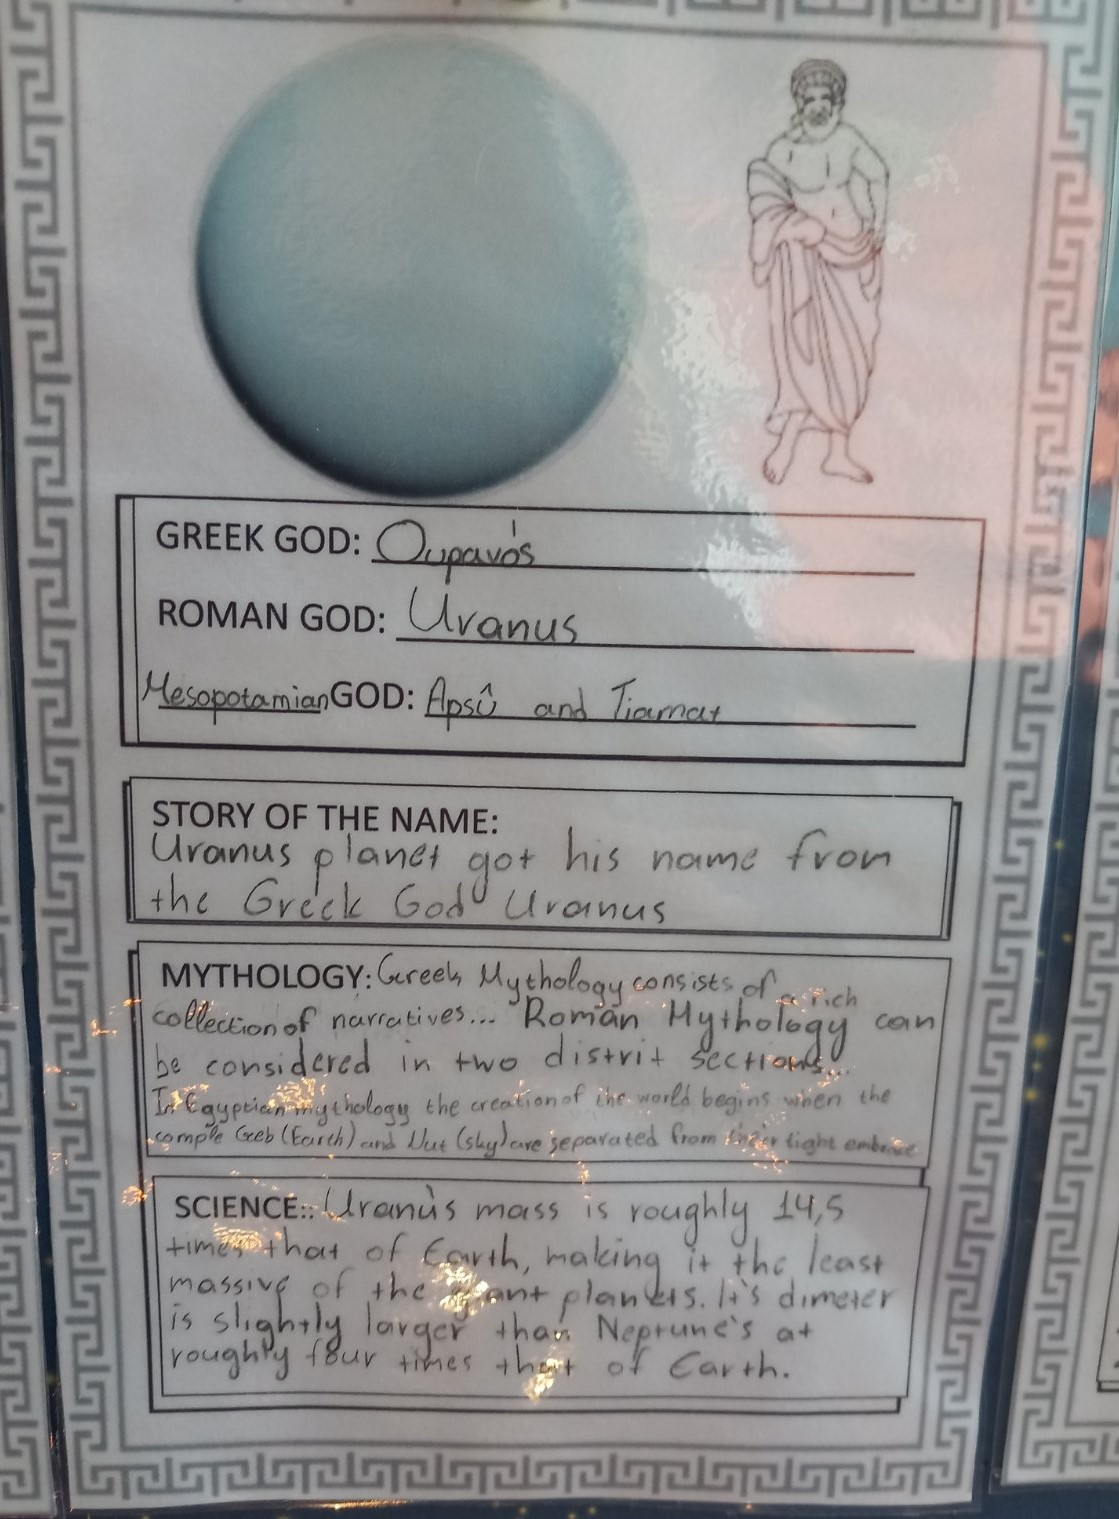 GREEK GOD: Ουρανός
ROMAN GOD: Uranus
Mesopotamian GOD: Apsû and Tiamat
STORY OF THE NAME:
Uranus planet got his name from
the Greek God Uranus
MYTHOLOGY: Greek Mythology consists of a rich
collection of narratives... Roman Mythology can
be considered in two distrit sections...
In Egyptian mythology the creation of the world begins when the
comple Geb (Earth) and Nut (sky) are separated from their tight embrace
SCIENCE:: Uranus mass is roughly 14,5
times that of Earth, making it the least
massive of the giant planets. It's dimeter
is slightly larger than Neptune's at
roughly four times that of Earth.